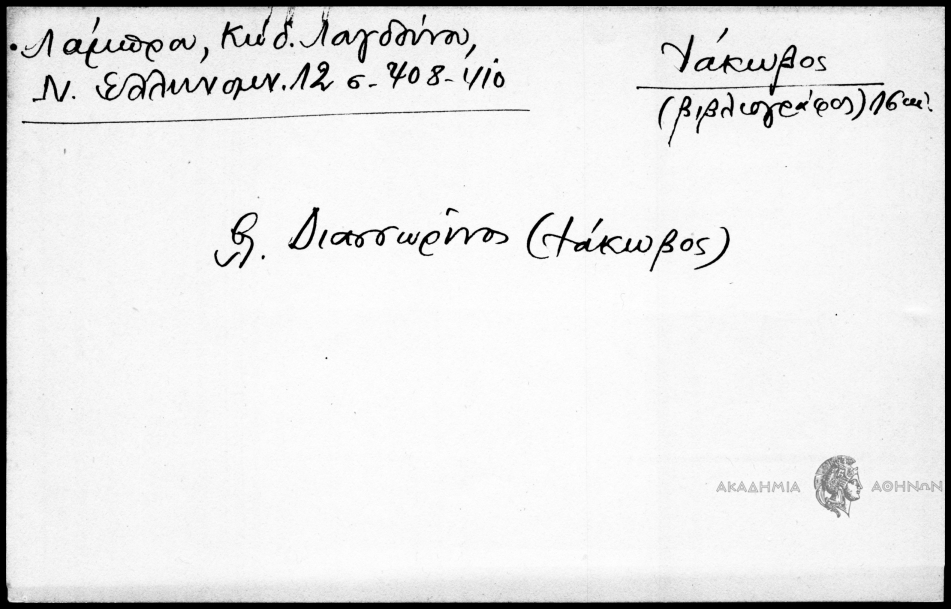 Λάμπρου, Κώδ. Λαγδίνου,
Ν. Ελληνομν. 12 σ. 408-410
Ἰάκωβος
(βιβλιογράφος) 16 αἰ.
βλ. Διασσωρῖνος (Ἰάκωβος)
ΑΚΑΔΗΜΙΑ ΑΘΗΝΩΝ